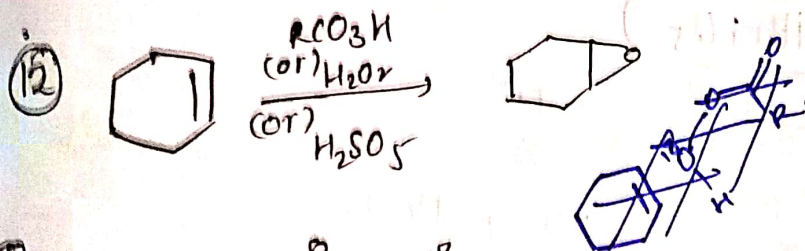 12
RCO3H
(or) H2O2
(or)
H2SO5
O